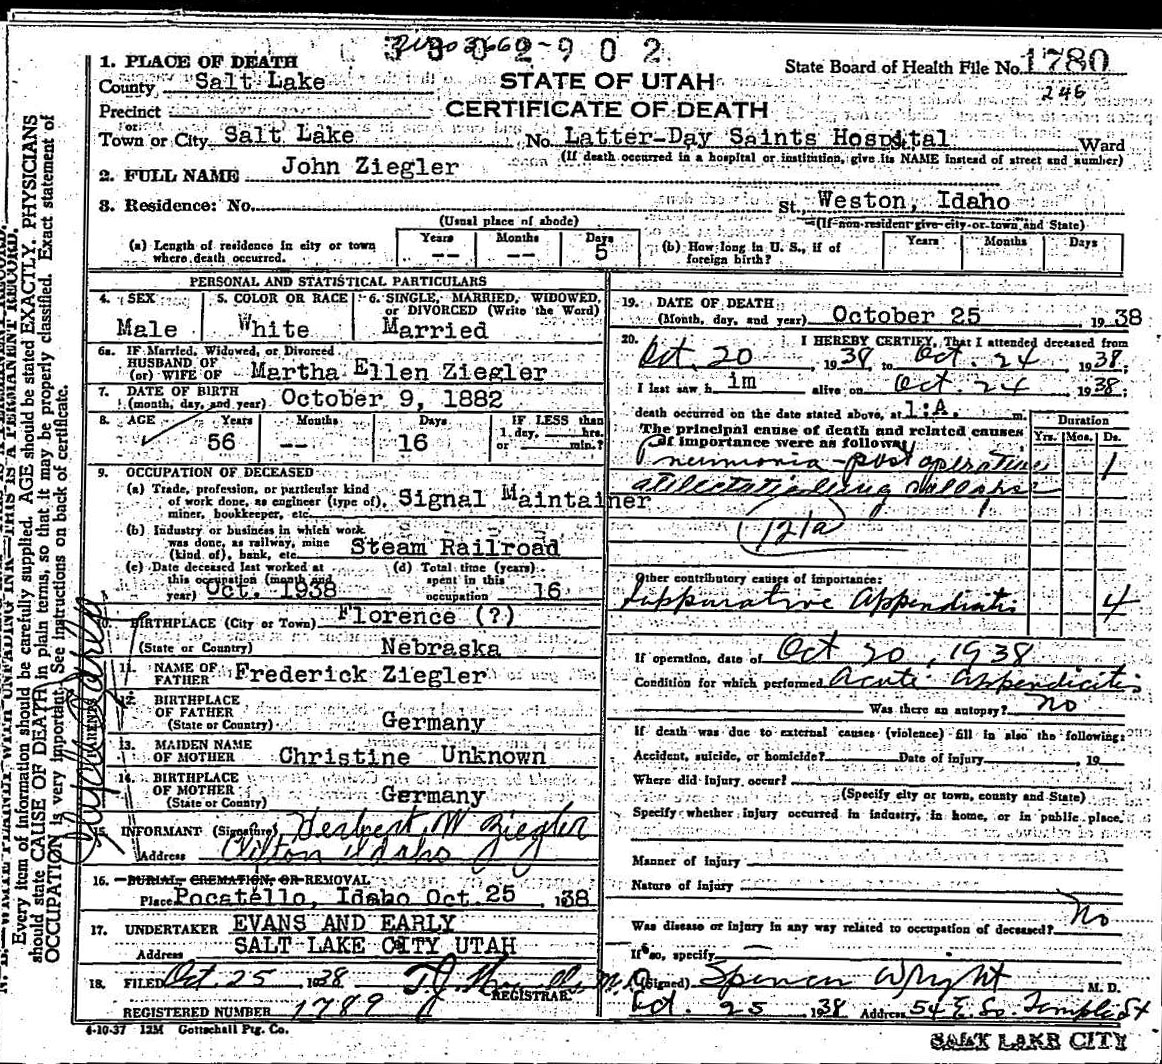 3802902
1. PLACE OF DEATH
County Salt Lake
STATE OF UTAH
State Board of Health File No. 1780
246
Precinct
CERTIFICATE OF DEATH
or
Town or City Salt Lake No. Latter-Day Saints Hospital St. Ward
(If death occurred in a hospital or institution, give its NAME instead of street and number)
2. FULL NAME John Ziegler
3. Residence: No. St. Weston, Idaho
(Usual place of abode) (If non-resident give city or town and State)
(a) Length of residence in city or town where death occurred. Years -- Months -- Days 5
(b) How long in U. S., if of foreign birth? Years Months Days
PERSONAL AND STATISTICAL PARTICULARS
4. SEX Male
5. COLOR OR RACE White
6. SINGLE, MARRIED, WIDOWED, or DIVORCED (Write the Word) Married
6a. IF Married, Widowed, or Divorced
HUSBAND OF
(or) WIFE OF Martha Ellen Ziegler
7. DATE OF BIRTH
(month, day, and year) October 9, 1882
8. AGE Years 56 Months -- Days 16 IF LESS than 1 day, hrs. or min.?
9. OCCUPATION OF DECEASED
(a) Trade, profession, or particular kind of work done, as engineer (type of), miner, bookkeeper, etc. Signal Maintainer
(b) Industry or business in which work was done, as railway, mine (kind of), bank, etc. Steam Railroad
(c) Date deceased last worked at this occupation (month and year) Oct. 1938
(d) Total time (years) spent in this occupation 16
10. BIRTHPLACE (City or Town) Florence (?)
(State or Country) Nebraska
PARENTS
11. NAME OF FATHER Frederick Ziegler
12. BIRTHPLACE OF FATHER
(State or Country) Germany
13. MAIDEN NAME OF MOTHER Christine Unknown
14. BIRTHPLACE OF MOTHER
(State or Country) Germany
15. INFORMANT (Signature) Herbert W Ziegler
Address Clifton Idaho
16. BURIAL, CREMATION, OR REMOVAL
Place Pocatello, Idaho Oct. 25, 1938
17. UNDERTAKER EVANS AND EARLY
Address SALT LAKE CITY UTAH
18. FILED Oct. 25 1938 T.J. M.D.
REGISTRAR.
REGISTERED NUMBER 1789
4-10-37 12M Gottschall Ptg. Co.
19. DATE OF DEATH
(Month, day, and year) October 25, 1938
20. I HEREBY CERTIFY, That I attended deceased from
Oct. 20, 1938, to Oct. 24, 1938;
I last saw h im alive on Oct. 24 1938;
death occurred on the date stated above, at 1:A. m.
The principal cause of death and related causes of importance were as follows: Duration Yrs. Mos. Ds.
Pneumonia - post operative 1
lung collapse
(121a)
Other contributory causes of importance:
Suppurative Appendicitis 4
If operation, date of Oct 20, 1938
Condition for which performed Acute Appendicitis
Was there an autopsy? No
If death was due to external causes (violence) fill in also the following:
Accident, suicide, or homicide? Date of injury 19
Where did injury occur?
(Specify city or town, county and State)
Specify whether injury occurred in industry, in home, or in public place.
Manner of injury
Nature of injury
Was disease or injury in any way related to occupation of deceased? No
If so, specify
(Signed) Spencer Wright M. D.
Oct. 25 1938 Address 54 E. So. Temple St
SALT LAKE CITY
Every item of information should be carefully supplied. AGE should be stated EXACTLY. PHYSICIANS
should state CAUSE OF DEATH in plain terms, so that it may be properly classified. Exact statement of
OCCUPATION is very important. See instructions on back of certificate.